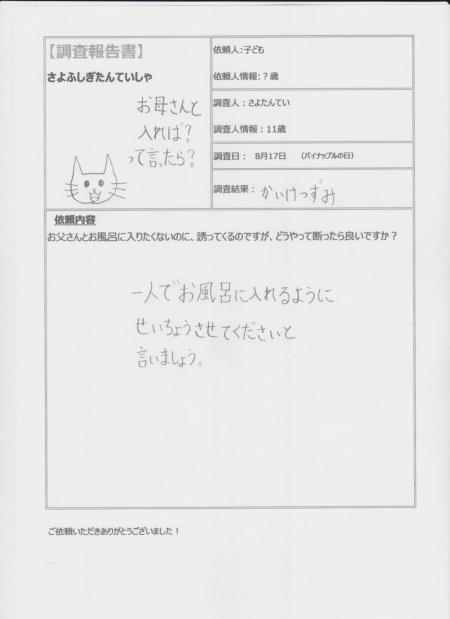 【調査報告書】
さよふしぎたんていしゃ
お母さんと
入れば?
って言ったら?
依頼人:子ども
依頼人情報:?歳
調査人:さよたんてい
調査人情報:11歳
調査日: 8月17日 (パイナップルの日)
調査結果: かいけつずみ
依頼内容
お父さんとお風呂に入りたくないのに、誘ってくるのですが、どうやって断ったら良いですか?
一人でお風呂に入れるように
せいちょうさせてくださいと
言いましょう。
ご依頼いただきありがとうございました!